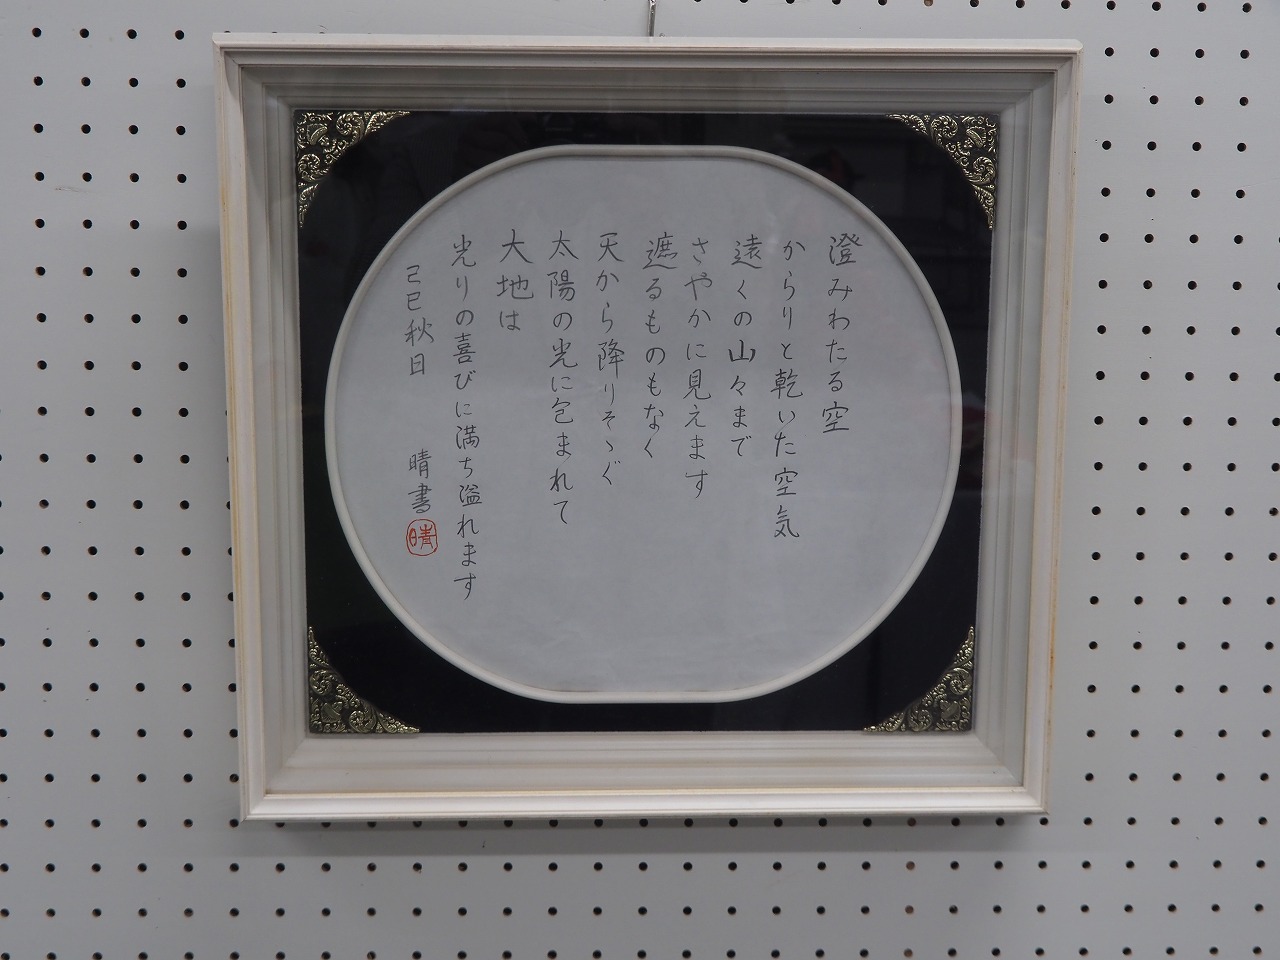 澄みわたる空
からりと乾いた空気
遠くの山々まで
さやかに見えます
遮るものもなく
天から降りそゝぐ
太陽の光に包まれて
大地は
光りの喜びに満ち溢れます
己巳秋日 晴書
晴